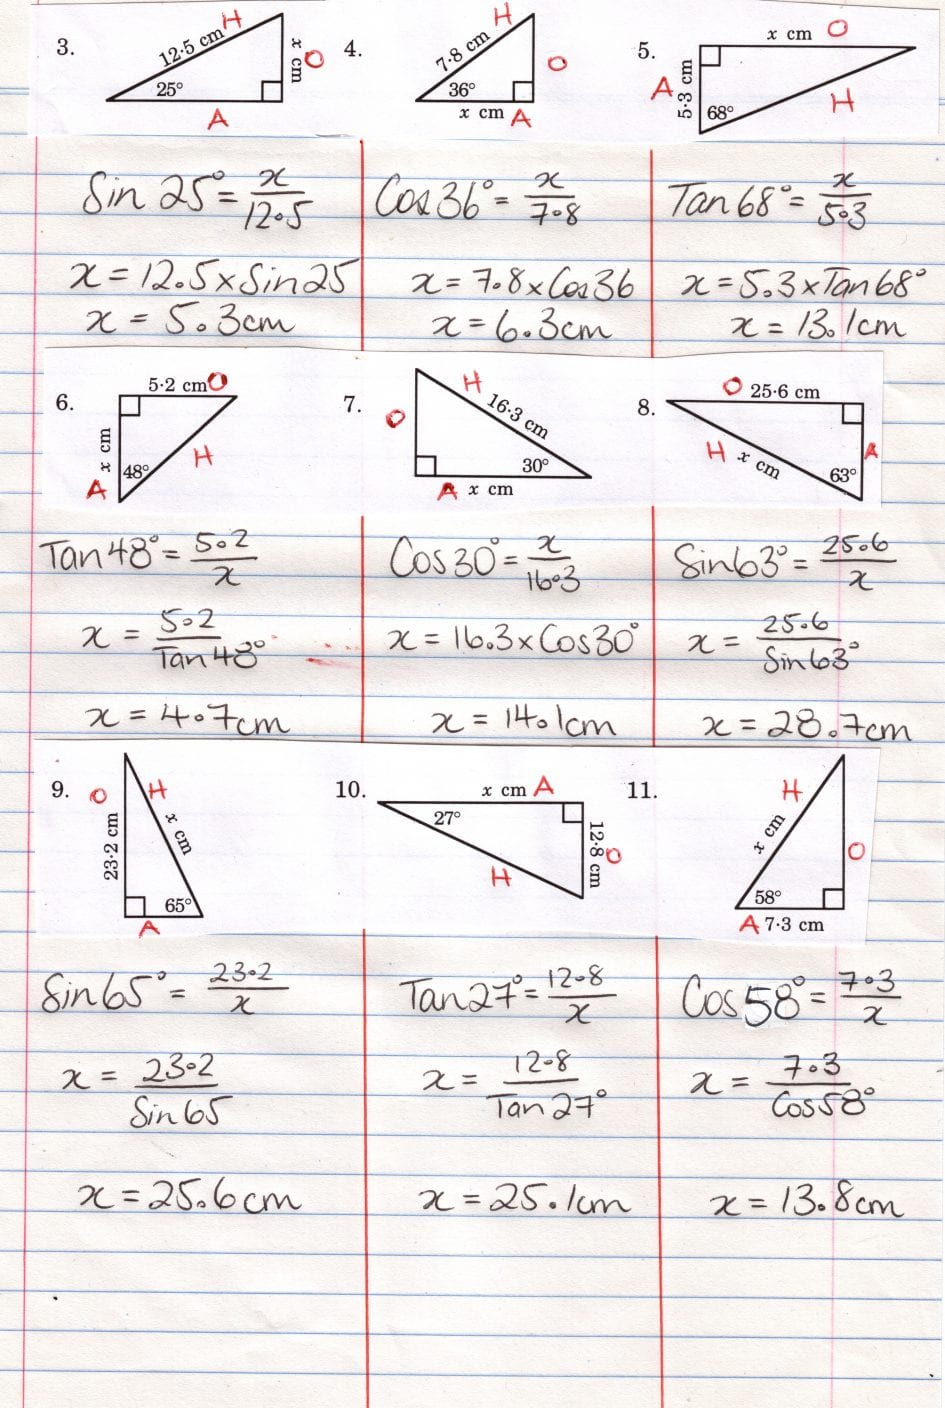 3.
12·5 cm H
x cm O
25°
A
Sin 25° = x/12.5
x = 12.5 x Sin 25
x = 5.3cm
4.
7·8 cm H
O
36°
x cm A
Cos 36° = x/7.8
x = 7.8 x Cos 36
x = 6.3cm
5.
x cm O
A 5·3 cm
68°
H
Tan 68° = x/5.3
x = 5.3 x Tan 68°
x = 13.1cm
6.
5·2 cm O
x cm
48°
H
A
Tan 48° = 5.2/x
x = 5.2/Tan 48°
x = 4.7cm
7.
H 16·3 cm
O
30°
A x cm
Cos 30° = x/16.3
x = 16.3 x Cos 30°
x = 14.1cm
8.
O 25·6 cm
H x cm
A
63°
Sin 63° = 25.6/x
x = 25.6/Sin 63°
x = 28.7cm
9.
O H
23·2 cm
x cm
65°
A
Sin 65° = 23.2/x
x = 23.2/Sin 65
x = 25.6cm
10.
x cm A
27°
12·8 cm O
H
Tan 27° = 12.8/x
x = 12.8/Tan 27°
x = 25.1cm
11.
H
x cm
O
58°
A 7·3 cm
Cos 58° = 7.3/x
x = 7.3/Cos 58°
x = 13.8cm